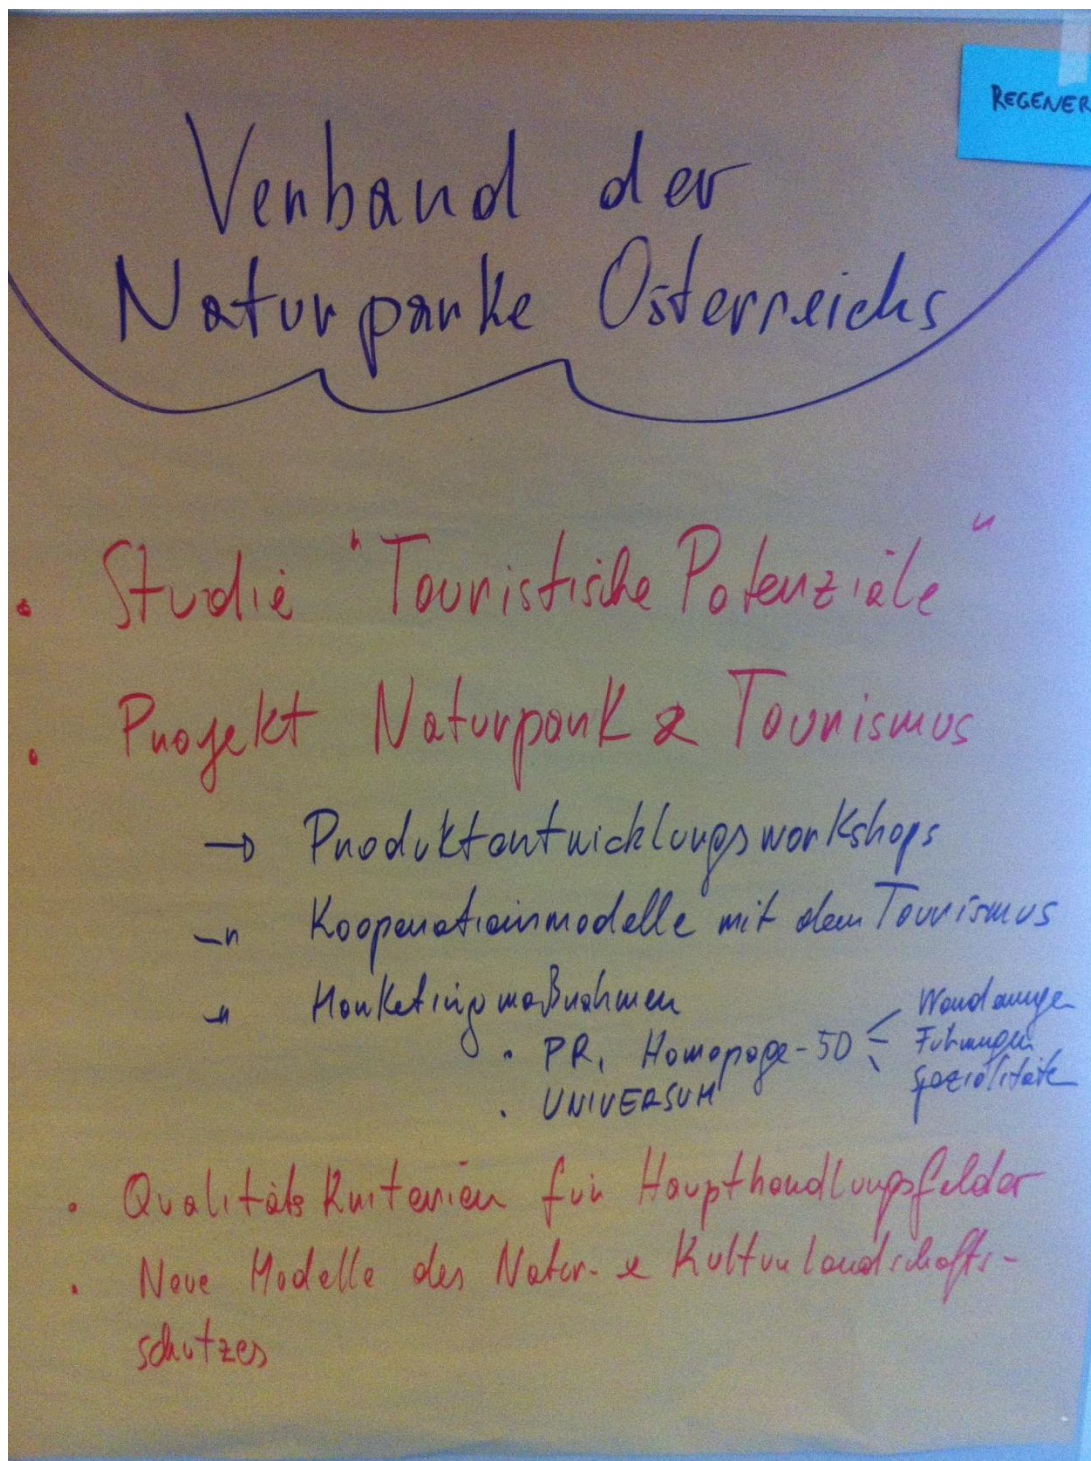 REGENER
Verband der
Naturparke Österreichs
• Studie "Touristische Potenziale"
• Projekt Naturpark & Tourismus
→ Produktentwicklungsworkshops
-"- Kooperationsmodelle mit dem Tourismus
-"- Marketingmaßnahmen
• PR, Homepage - 50 < Wanderungen
- Führungen
\ Spezialitäten
• UNIVERSUM
• Qualitätskriterien für Haupthandlungsfelder
• Neue Modelle des Natur- & Kulturlandschafts-
schutzes